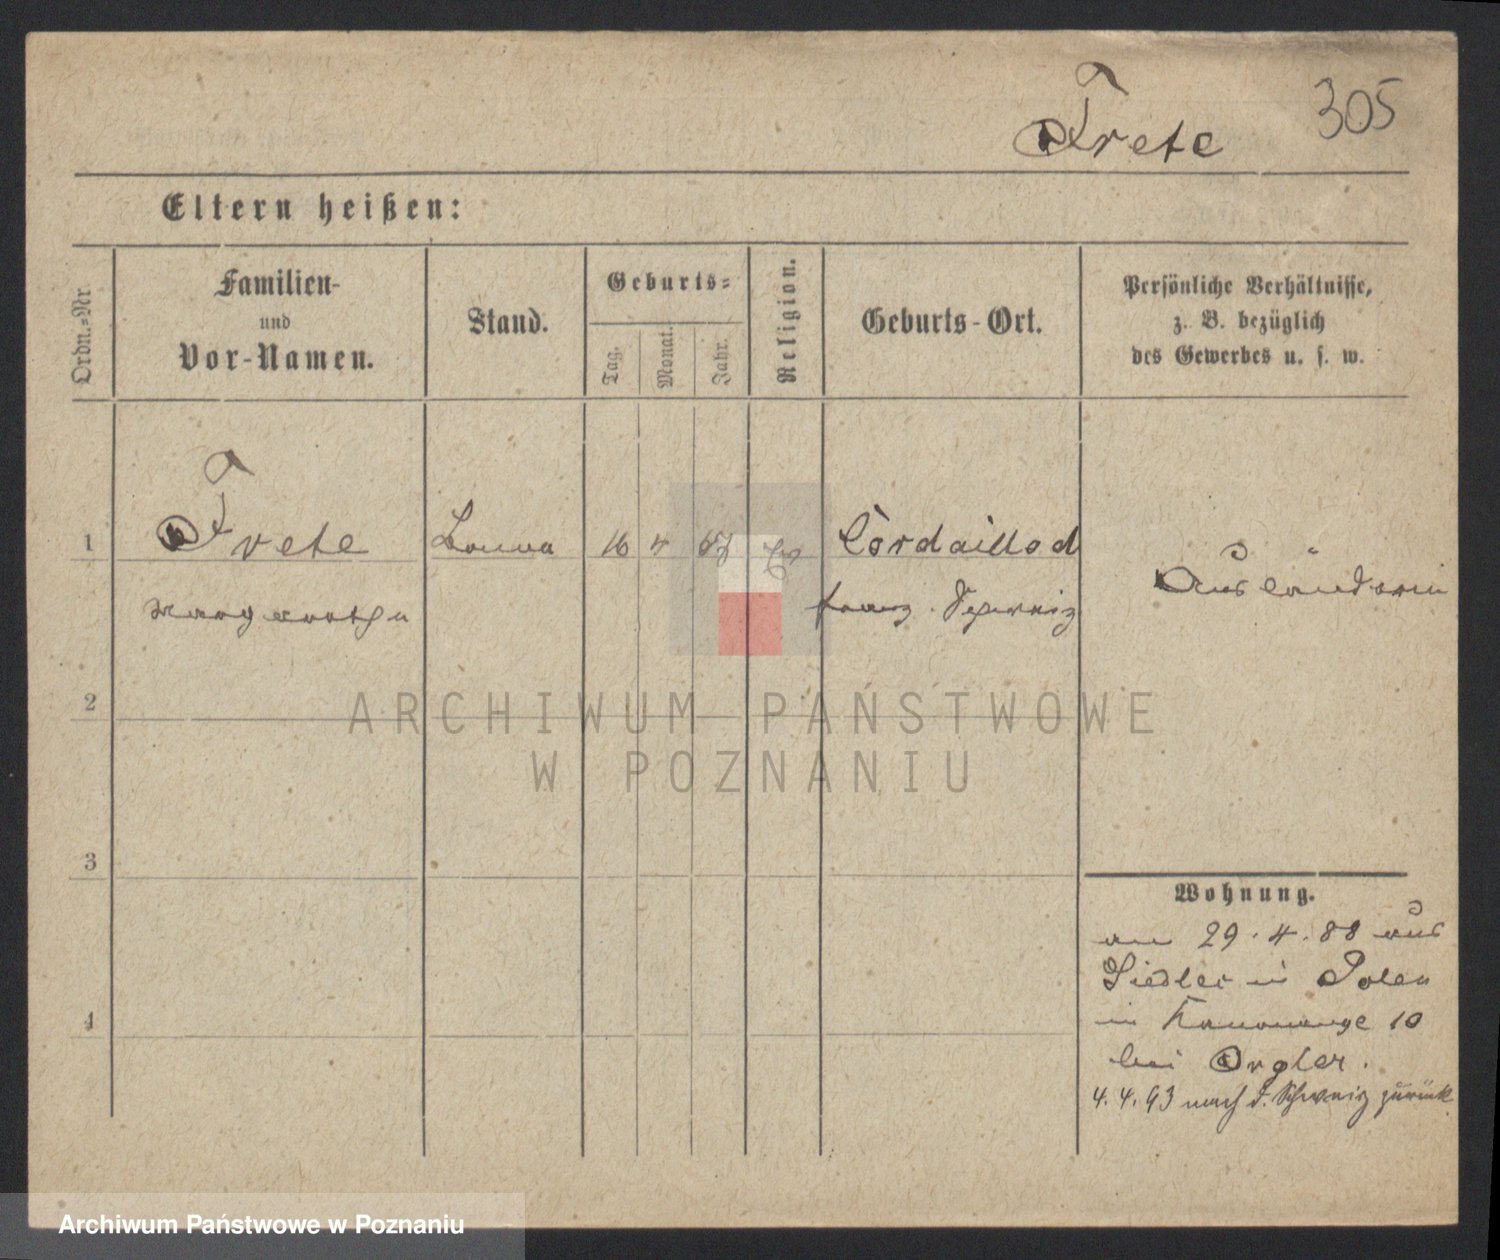 305
Frete
Eltern heißen:
Ordn.-Nr
Familien-
und
Vor-Namen.
Stand.
Geburts-
Tag.
Monat.
Jahr.
Religion.
Geburts-Ort.
Persönliche Verhältnisse,
z. B. bezüglich
des Gewerbes u. s. w.
1
Frete Bonna 16 4 Cordaillod
Margarethe franz. Schweiz
Ausländerin
2
3
4
Wohnung.
am 29.4.88 aus
Siedlec in Polen
in Kanonenge 10
bei Orgler.
4.4.93 nach d. Schweiz zurück
ARCHIWUM PAŃSTWOWE
W POZNANIU
Archiwum Państwowe w Poznaniu